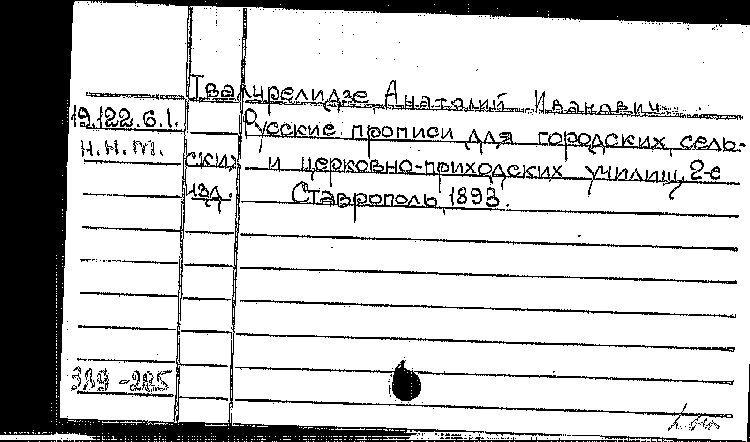 Твалчрелидзе Анатолий Иванович
19.122.6.1. Русские прописи для городских, сель-
Н.Н.М. ских и церковно-приходских училищ. 2-е
изд. Ставрополь, 1893.
389-285